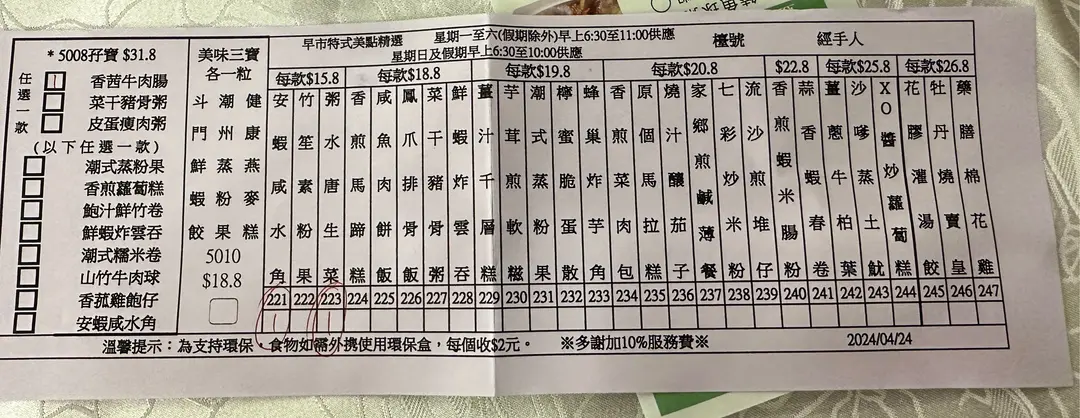 早市特式美點精選
星期一至六(假期除外)早上6:30至11:00供應
星期日及假期早上6:30至10:00供應
檯號
經手人
*5008孖寶 $31.8
任選一款
香茜牛肉腸
菜干豬骨粥
皮蛋瘦肉粥
(以下任選一款)
潮式蒸粉果
香煎蘿蔔糕
鮑汁鮮竹卷
鮮蝦炸雲吞
潮式糯米卷
山竹牛肉球
香菰雞飽仔
安蝦咸水角
美味三寶
各一粒
斗門鮮蝦餃
潮州蒸粉果
健康燕麥糕
5010
$18.8
每款$15.8
安蝦咸水角
221
竹笙素粉果
222
粥水唐生菜
223
每款$18.8
香煎馬蹄糕
224
咸魚肉餅飯
225
鳳爪排骨飯
226
菜干豬骨粥
227
鮮蝦炸雲吞
228
每款$19.8
薑汁千層糕
229
芋茸煎軟糍
230
潮式蒸粉果
231
檸蜜脆蛋散
232
蜂巢炸芋角
233
每款$20.8
香煎菜肉包
234
原個馬拉糕
235
燒汁釀茄子
236
家鄉煎鹹薄餐
237
七彩炒米粉
238
流沙煎堆仔
239
$22.8
香煎蝦米腸
240
蒜香蝦春卷
241
每款$25.8
薑蔥牛柏葉
242
沙嗲蒸土魷
243
XO醬炒蘿蔔糕
244
每款$26.8
花膠灌湯餃
245
牡丹燒賣皇
246
藥膳棉花雞
247
溫馨提示：為支持環保，食物如需外携使用環保盒，每個收$2元。
※多謝加10%服務費※
2024/04/24